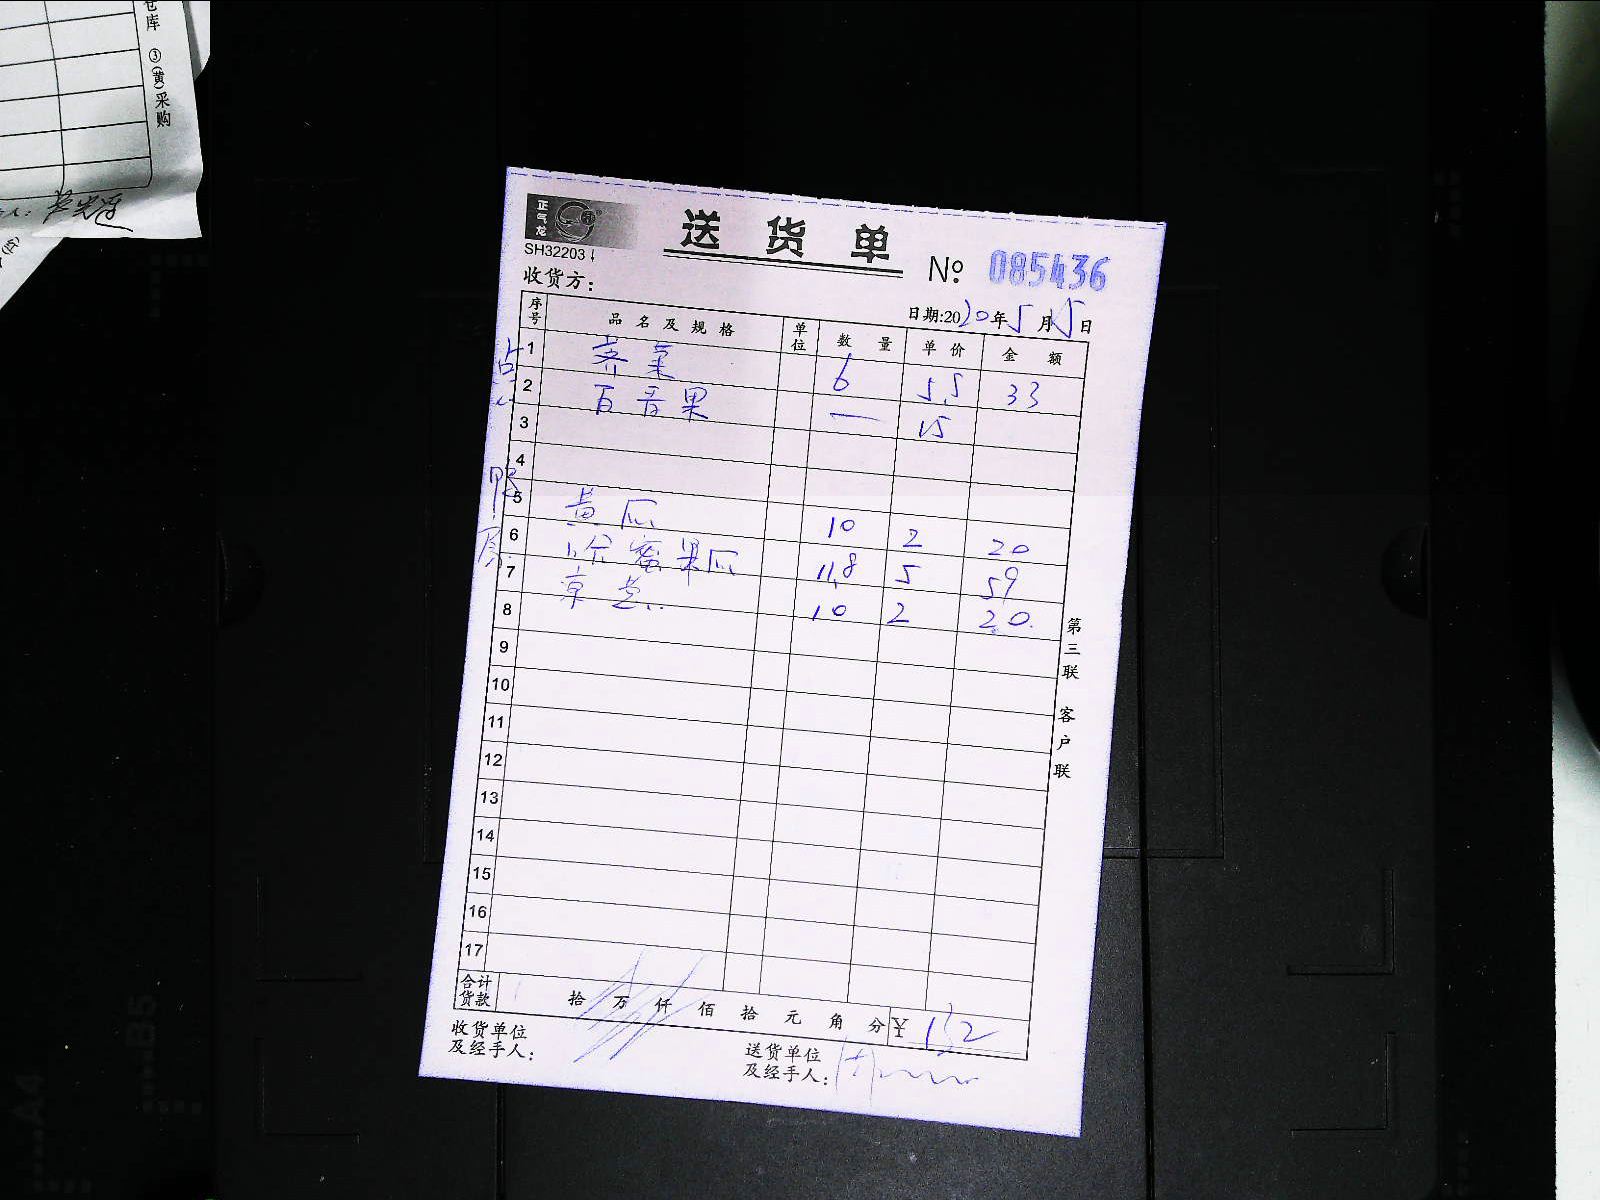 仓库 ③(黄)采购
正气龙
SH32203
送货单
№ 085436
收货方：
日期:2020年5月15日
序号 品名及规格 单位 数量 单价 金额
点心
1 荠菜 6 5.5 33
2 百香果 一 15
3
4
厨房
5 黄瓜 10 2 20
6 哈蜜果瓜 11.8 5 59
7 京葱 10 2 20
8
9
10
11
12
13
14
15
16
17
合计货款 拾 万 仟 佰 拾 元 角 分 ¥ 132
收货单位及经手人：
送货单位及经手人：
第三联 客户联
A4
B5